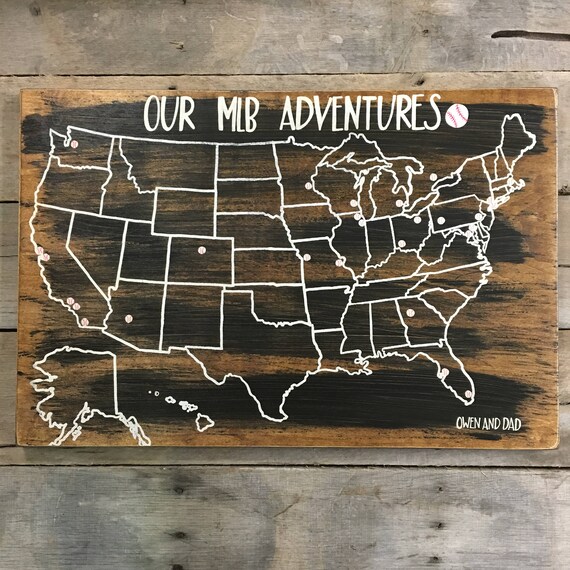 OUR MLB ADVENTURES
OWEN AND DAD